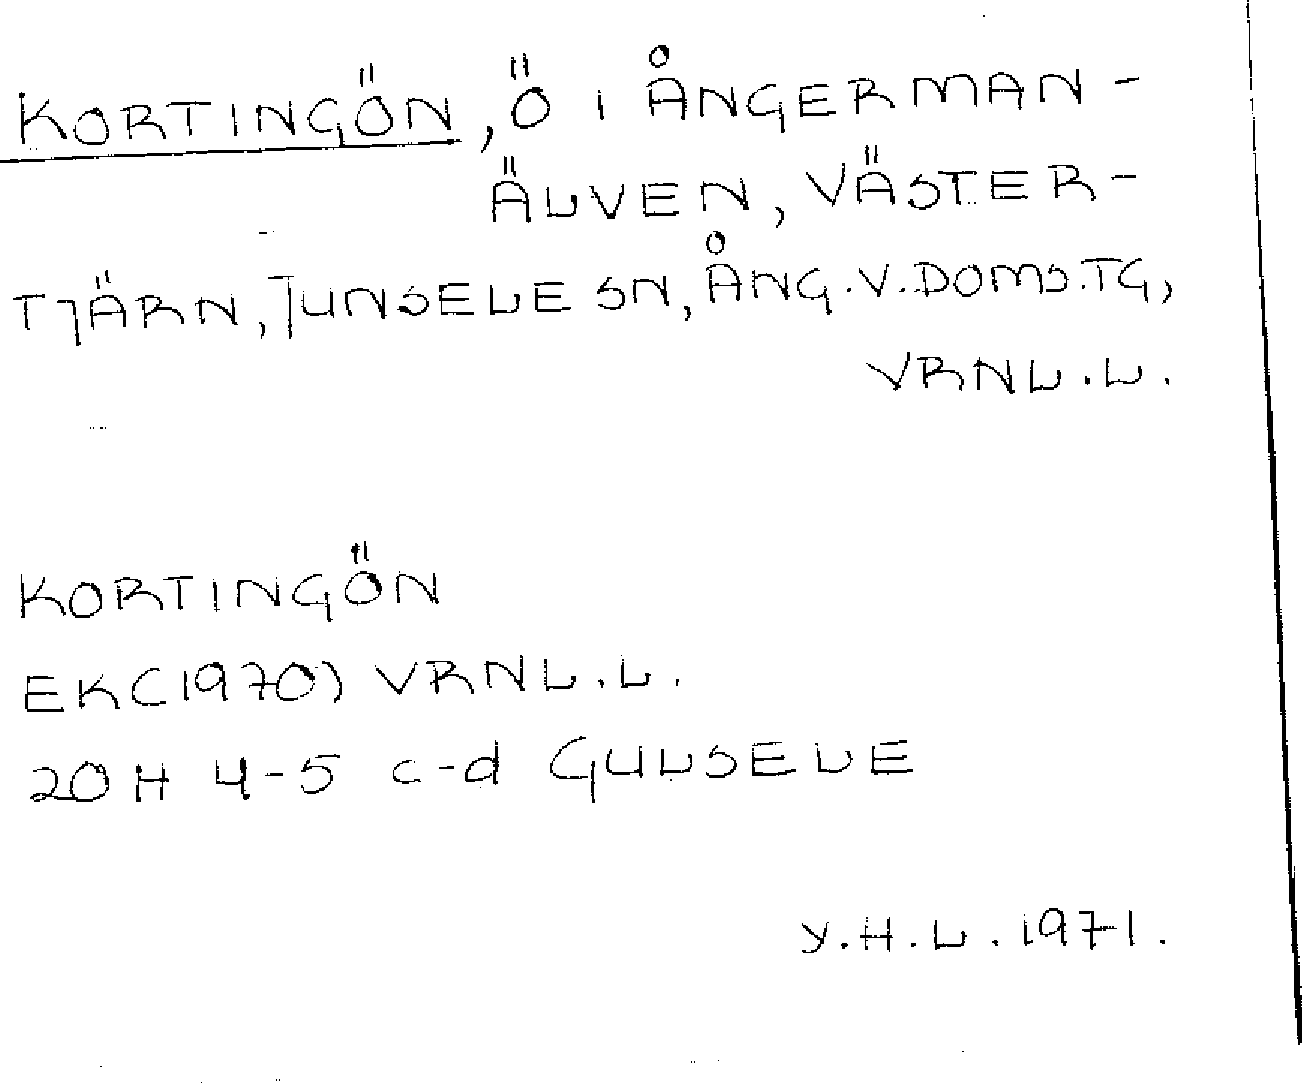 KORTINGÖN, Ö I ÅNGERMAN-
ÄLVEN, VÄSTER-
TJÄRN, JUNSELE SN, ÅNG.V.DOMS.TG,
VRNL.L.
KORTINGÖN
EK(1970) VRNL.L.
20H 4-5 c-d GULSELE
Y.H.L. 1971.